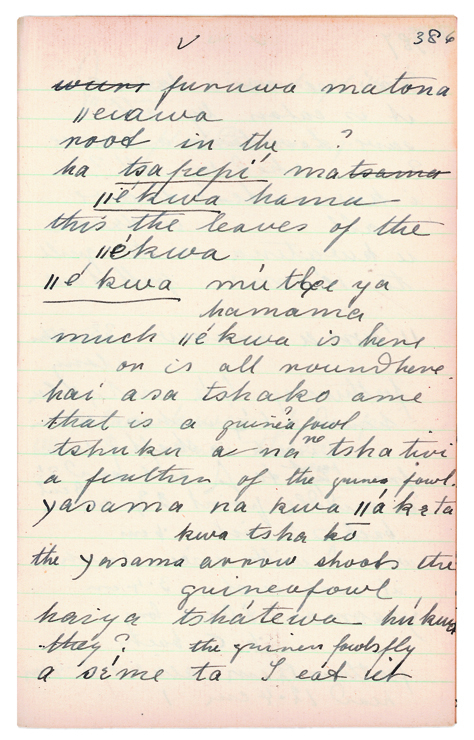 ✓ 386
wuns furuwa matona
ǁeiawa
root in the ?
ha tsapepi matsama
ǁékwa hama
this the leaves of the
ǁékwa
ǁékwa mútbe ya
hamama
much ǁékwa is here
or is all roundhere.
hai asa tshako ame
that is a guineafowl
tshuku a na ne tshativi
a feather of the guinea fowl.
yasama na kwa ǁákata
kwa tsha kō
the yasama arrow shoots the
guineafowl
haiya tshátewa húkwa
they? the guinea fowls fly
a séme ta I eat it